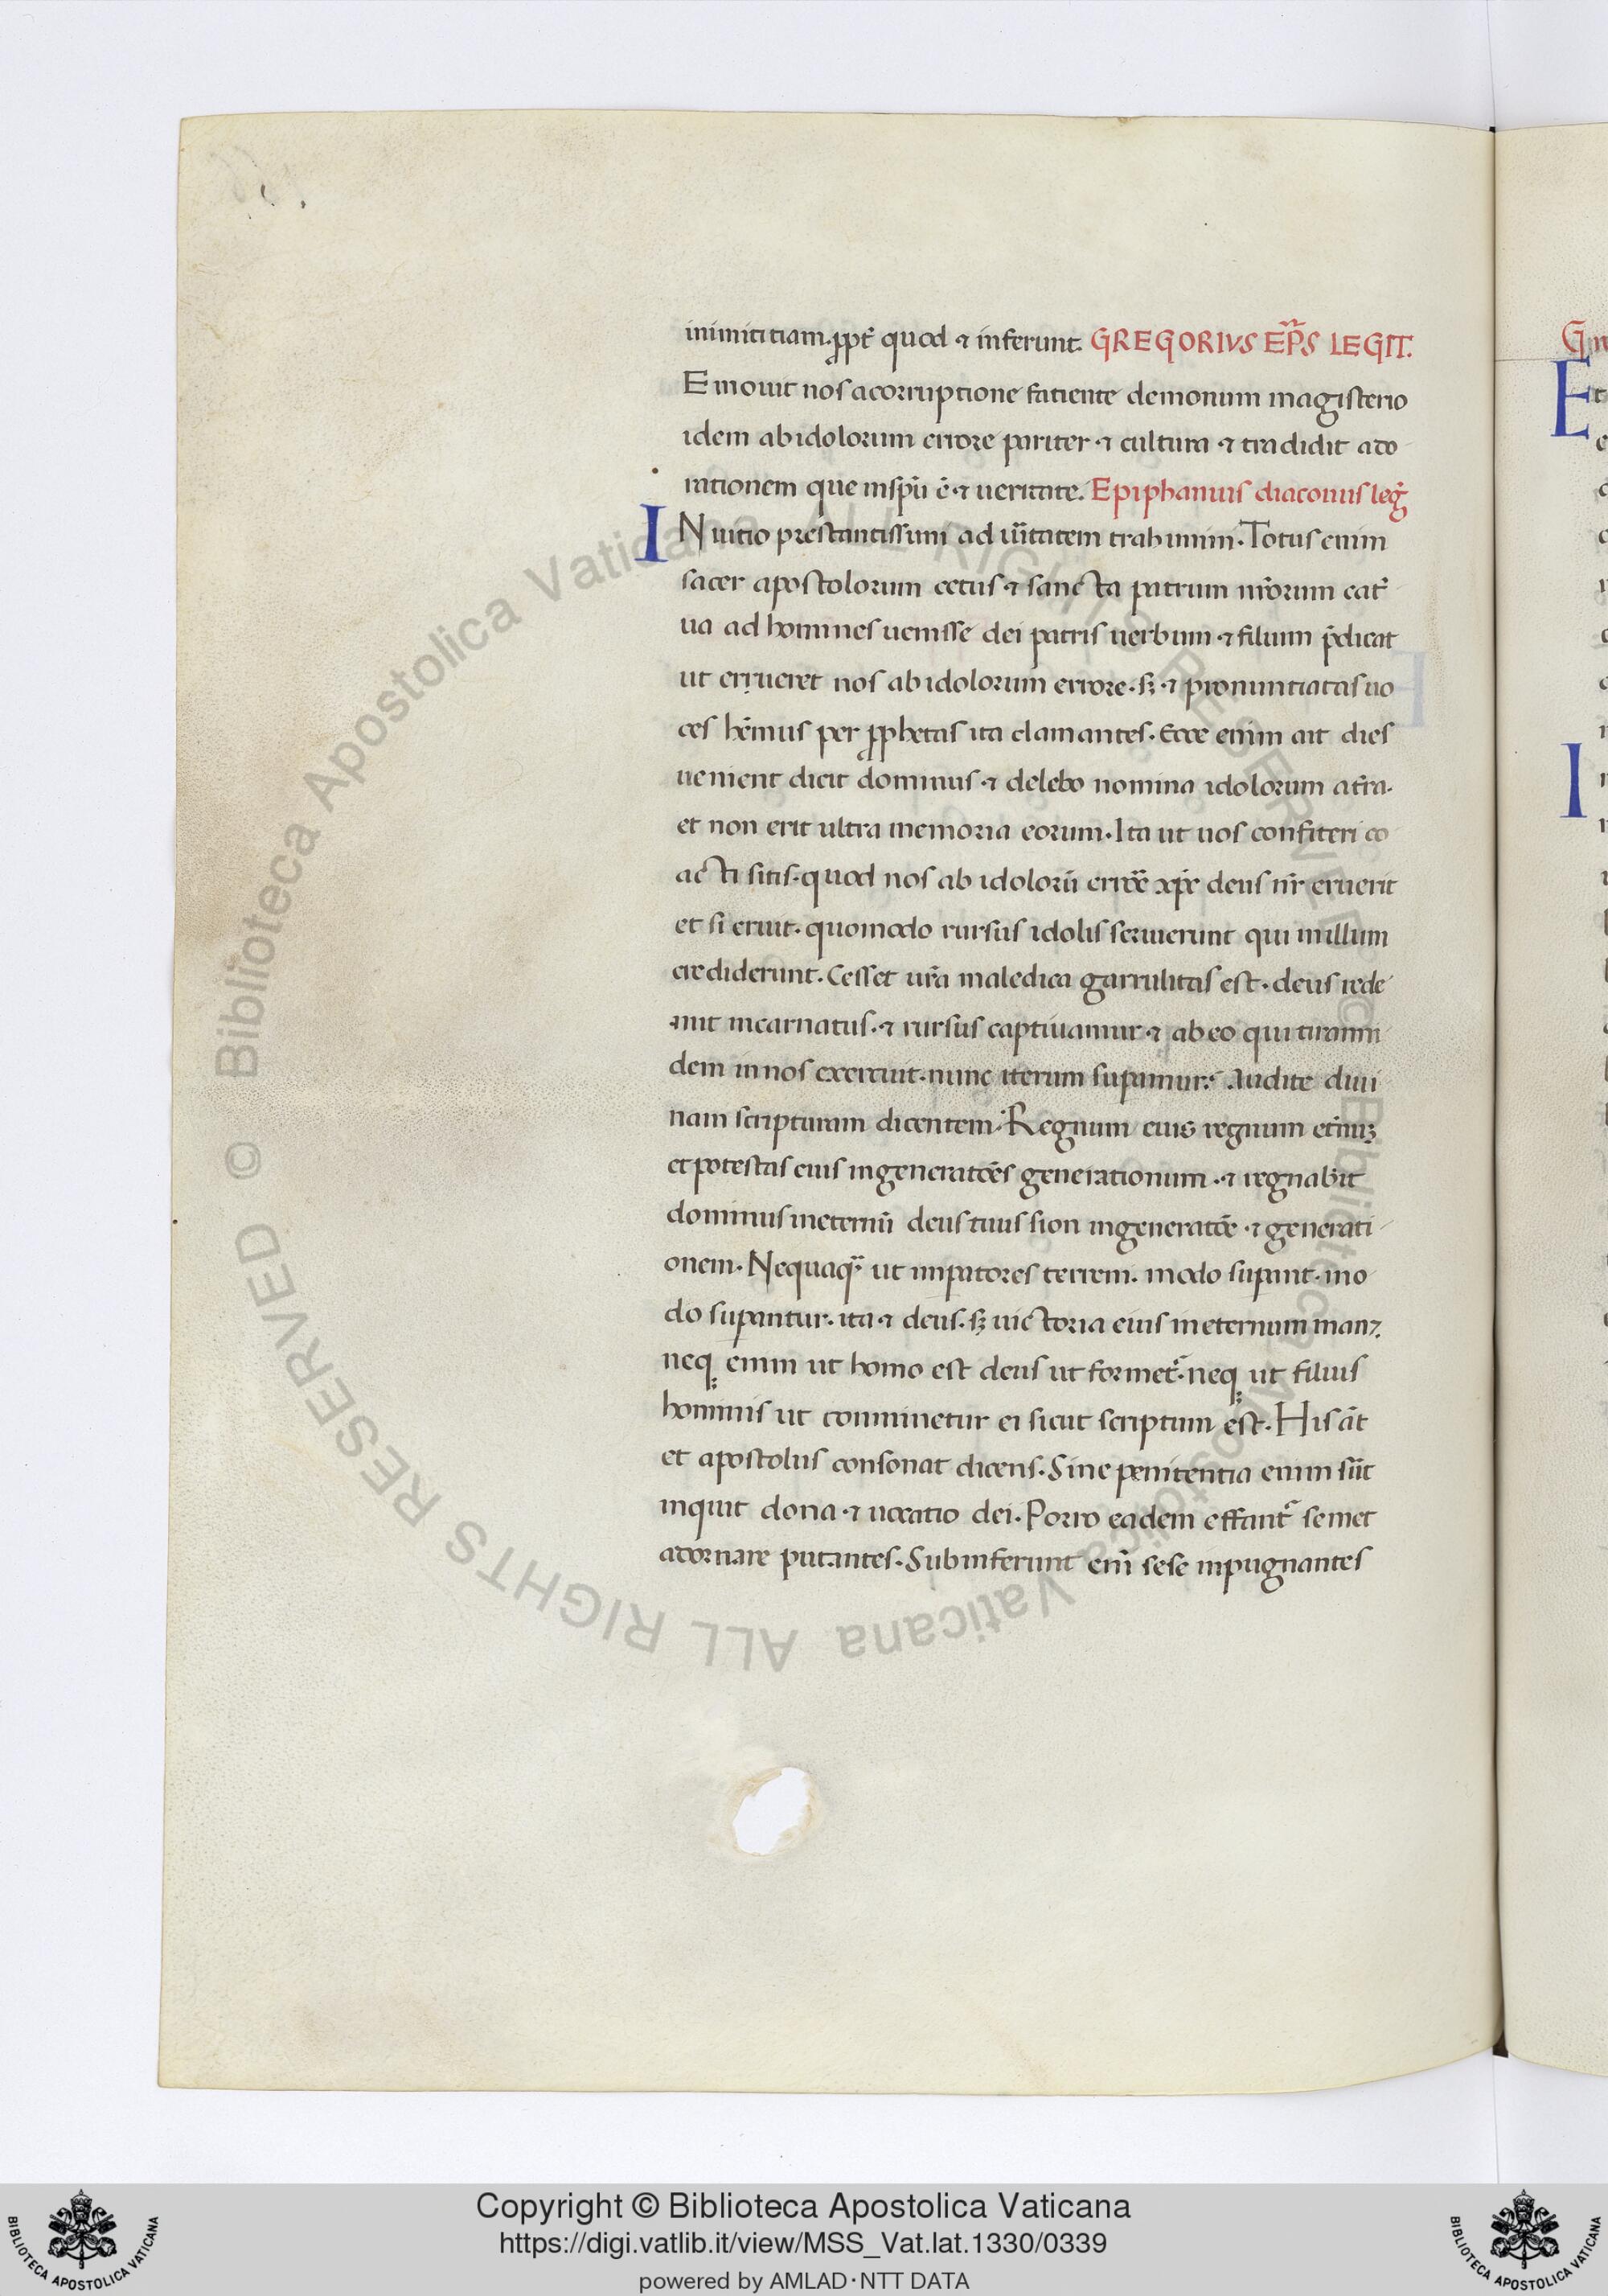 inimicitiam. ꝓpt̄ quod ⁊ inferunt. GREGORIVS EP̄S LEGIT.
Emouit nos a corruptione faciente demonum magisterio
idem ab idolorum errore pariter ⁊ cultura ⁊ tradidit ado
rationem que in sp̄u ē ⁊ ueritate. Epiphanius diaconus leḡ
INuitio prestantissimi ad ūitatem trahimini. Totus enim
sacer apostolorum cetus ⁊ sancta patrum nr̄orum cat̄
ua ad homines uenisse dei patris uerbum ⁊ filium p̄dicat
ut errueret nos ab idolorum errore. sꝫ ⁊ pronuntiatas uo
ces hēmus per ꝓphetas ita clamantes. Ecce enim ait dies
uenient dicit dominus ⁊ delebo nomina idolorum a t̄ra.
et non erit ultra memoria eorum. Ita ut uos confiteri co
acti sitis. quod nos ab idolorū errōē xp̄c deus nr̄ eruerit
et si eruit. quomodo rursus idolis seruierunt qui in illum
crediderunt. Cesset ur̄a maledica garrulitas est. deus rede
mit incarnatus. ⁊ rursus captiuamur ⁊ ab eo qui tiranni
dem in nos exercuit. nunc iterum suꝑamur. Audite diui
nam scripturam dicentem. Regnum eius regnum et̄nuꝫ
et potestas eius in generatōēs generationum. ⁊ regnabit
dominus in eternū deus tuus sion in generatōē ⁊ generati
onem. Nequaq̄ ut imꝑatores terreni. modo suꝑant. mo
do suꝑantur. ita ⁊ deus. sꝫ uictoria eius in eternum man⁊.
neqꝫ enim ut homo est deus ut formet᷑. neqꝫ ut filius
hominis ut comminetur ei sicut scriptum est. His āt
et apostolus consonat dicens. Sine penitentia enim sūt
inquit dona ⁊ uocatio dei. Porro eadem effant᷑ semet
adornare putantes. Subinferunt eni᷑ sese inpugnantes
Copyright © Biblioteca Apostolica Vaticana
https://digi.vatlib.it/view/MSS_Vat.lat.1330/0339
powered by AMLAD·NTT DATA
BIBLIOTECA APOSTOLICA VATICANA
BIBLIOTECA APOSTOLICA VATICANA
© Biblioteca Apostolica Vaticana ALL RIGHTS RESERVED
© Biblioteca Apostolica Vaticana ALL RIGHTS RESERVED